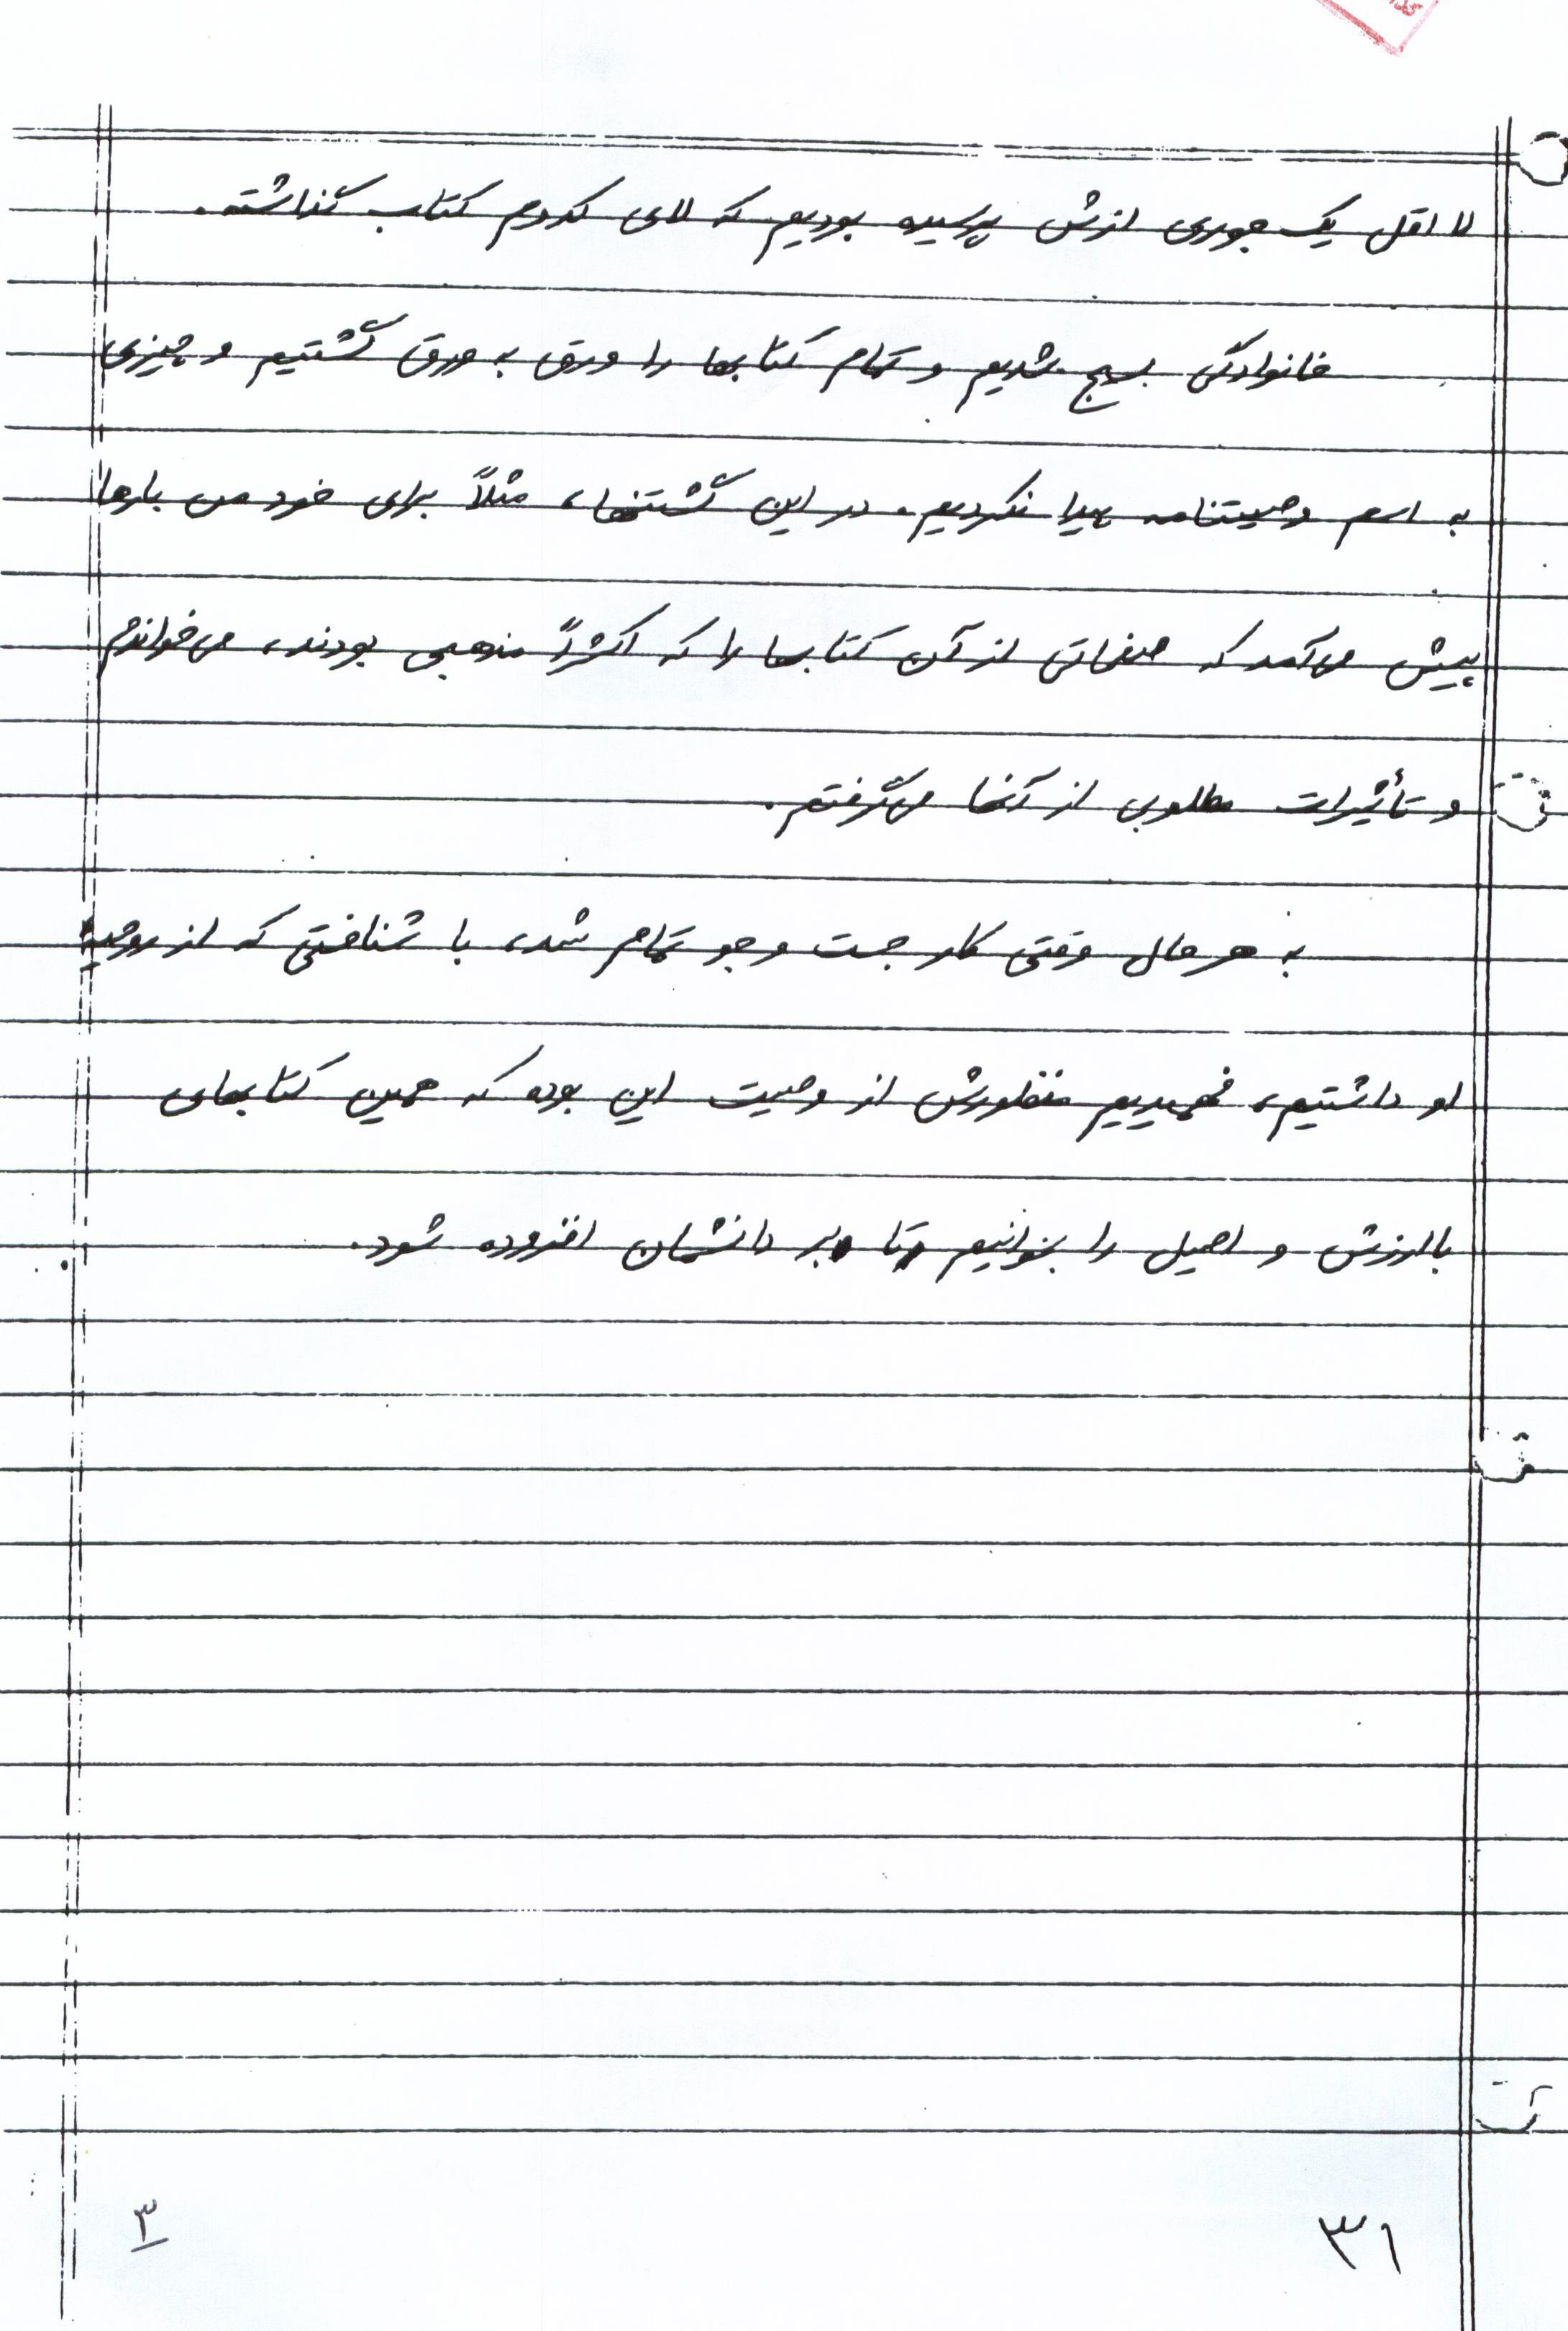 لااقل یک جوری ازش پرسیده بودیم که لای کدوم کتاب گذاشته.
خانوادگی بسیج شدیم و تمام کتابها را ورق به ورق گشتیم و چیزی
به اسم وصیتنامه پیدا نکردیم. در این گشتنها، مثلاً برای خود من بارها
پیش می‌آمد که صفحاتی از آن کتابها را که اکثراً مذهبی بودند، می‌خواندم
و تأثیرات مطلوبی از آنها می‌گرفتم.
به هر حال وقتی کار جست و جو تمام شد، با شناختی که از روحیه
او داشتیم، فهمیدیم منظورش از وصیت این بوده که همین کتابهای
باارزش و اصیل را بخوانیم تا بر دانشمان افزوده شود.
۳۱
۳